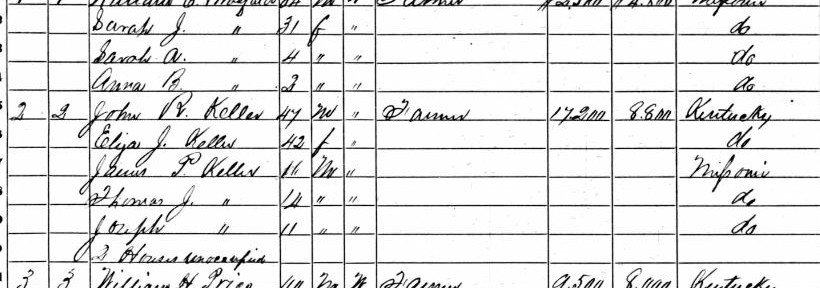 Sarah J. " 31 f " do
Sarah A. 4 " " do
Anna B. " 2 " " do
2 2 John R. Keller 47 M " Farmer 17200 8.800 Kentucky
Eliza J. Keller 42 f " do
James P. Keller 16 M " Missouri
Thomas J. " 14 " " do
Joseph " 11 " " do
2 Houses unoccupied
3 3 William H. Price M W Farmer 9.500 8.000 Kentucky